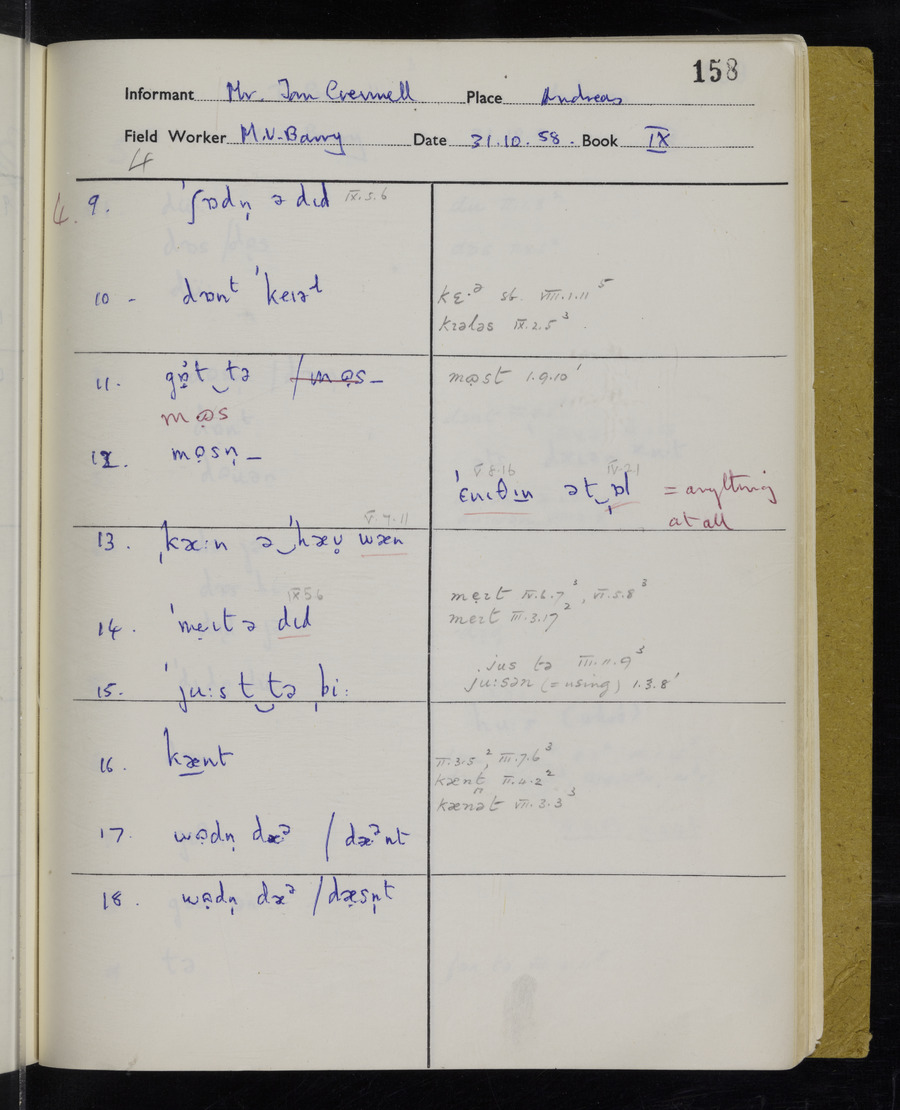 158
Informant Mr. Ian Cresswell Place Andreas
Field Worker M.V. Barry Date 31.10.58. Book IX
4
4. 9. ˈʃɒdn̩ ə dɪd IX.5.6
10 - dɒnt ˈkeɪəl
kɛ·ᵊ sb. VIII.1.11⁵
kɪələs IX.2.5³
11. gɒ̣̈t‿tə / mọs-
mọst 1.9.10'
mọs
12. mọsn̩ -
V.8.16 IV.2.1
ˈɛnɪθɪn ət‿ɒl = anything
at all
V.7.11
13. ˌkæ:n ə‿ˈhæṿ wæn
IX 5 6
14. ˈmẹɪt ə dɪd
mẹɪt IV.6.7³, VI.5.8³
meɪt III.3.17²
15. ˈju:s t‿tə bi:
jus tə III.11.9³
ju:sən (= using) 1.3.8'
16. kænt
II.3.5², III.7.6³
kænt II.4.2²
kænət VII.3.3³
17. wọdn̩ dæᵊ / dæᵊnt
18. wọdn̩ dæᵊ / dæsn̩t